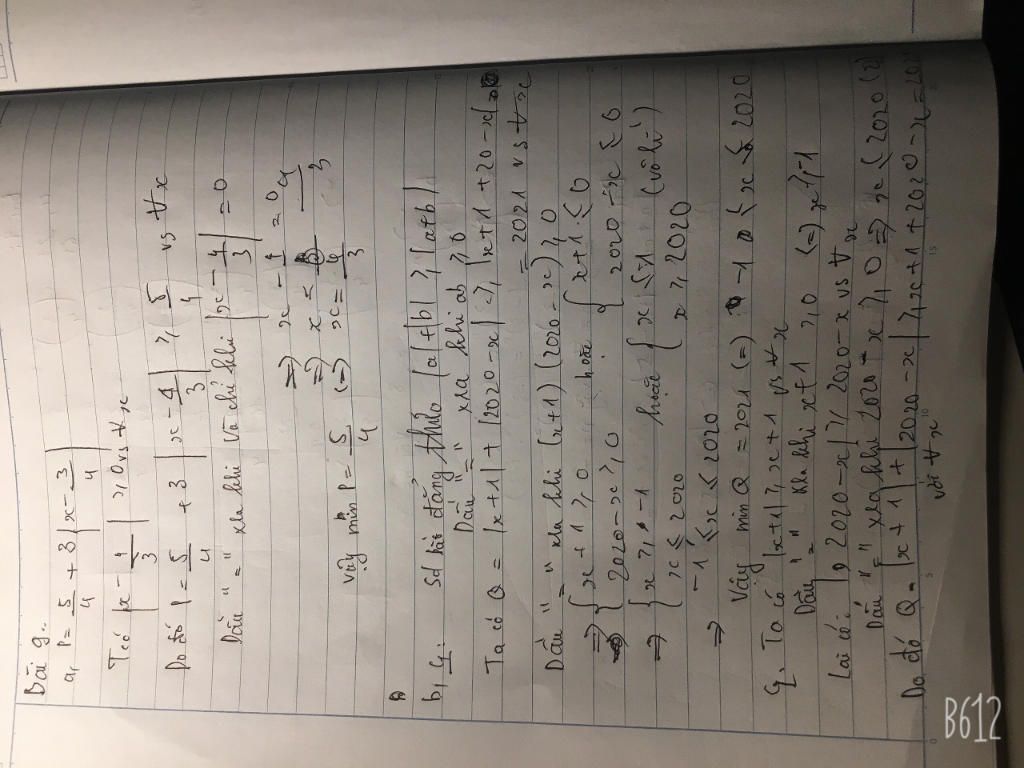 Bài 9..
a, P = 5/4 + 3|x - 3/4|
Tcó |x - 4/3| ≥ 0 vs ∀x
Do đó P = 5/4 + 3|x - 4/3| ≥ 5/4 vs ∀x
Dấu "=" xra khi và chỉ khi |x - 4/3| = 0
=> x - 4/3 = 0
=> x =
<=> x = 4/3
Vậy min P = 5/4
b, C1: Sd bất đẳng thức |a| + |b| ≥ |a+b|
Dấu "=" xra khi ab ≥ 0
Ta có Q = |x+1| + |2020-x| ≥ |x+1+20-x|
= 2021 vs ∀x
Dấu "=" xra khi (x+1)(2020-x) ≥ 0
=> { x+1 ≥ 0 hoặc { x+1 ≤ 0
2020-x ≥ 0 2020-x ≤ 0
=> { x ≥ -1 hoặc { x ≤ -1 (vô lí)
x ≤ 2020 x ≥ 2020
=> -1 ≤ x ≤ 2020
Vậy min Q = 2021 (=) -1 ≤ x ≤ 2020
C2, Ta có |x+1| ≥ x+1 vs ∀x
Dấu "=" xra khi x+1 ≥ 0 (=) x ≥ -1
Lại có: |2020-x| ≥ 2020-x vs ∀x
Dấu "=" xra khi 2020-x ≥ 0 => x ≤ 2020 (2)
Do đó Q = |x+1| + |2020-x| ≥ x+1+2020-x = 2021
với ∀x
B612